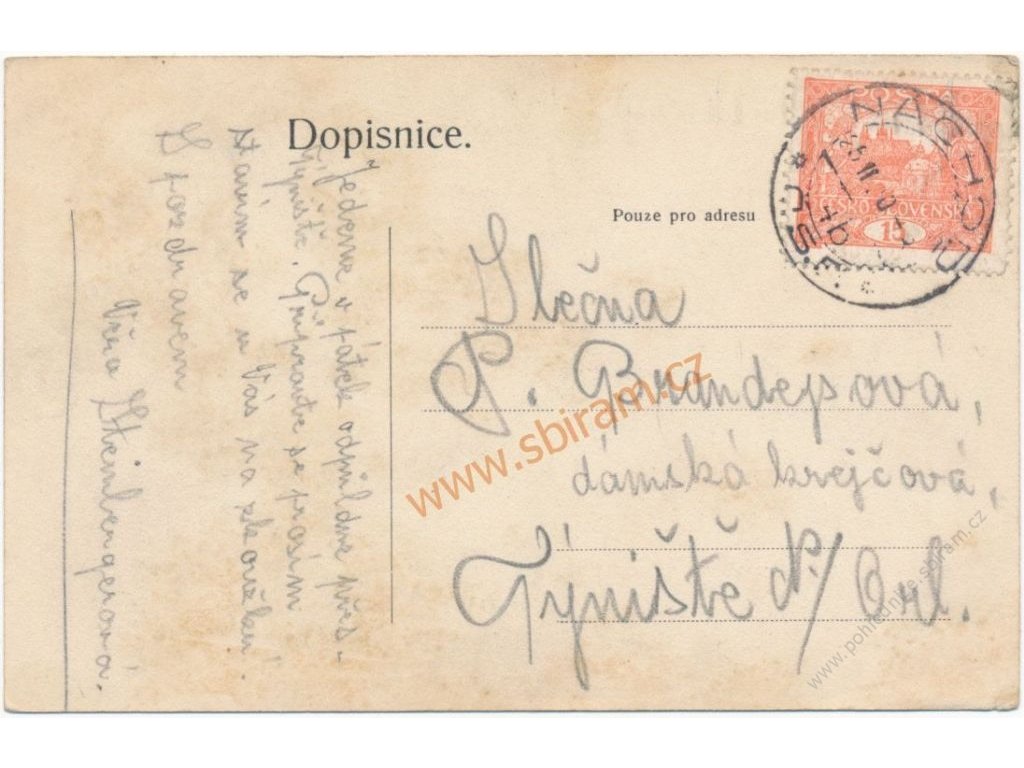 Dopisnice.
Jedeme v pátek odpoledne přes
Týniště. Připravte se prosím
stavím se u Vás na zkoušku.
S pozdravem
Věra Steinbergerová.
Pouze pro adresu
POŠTA
ČESKO-SLOVENSKÁ
15
NÁCHOD
Slečna
P. Brandejsová,
dámská krejčová,
Týniště n./Orl.
www.sbiram.cz
www.pohlednice.sbiram.cz